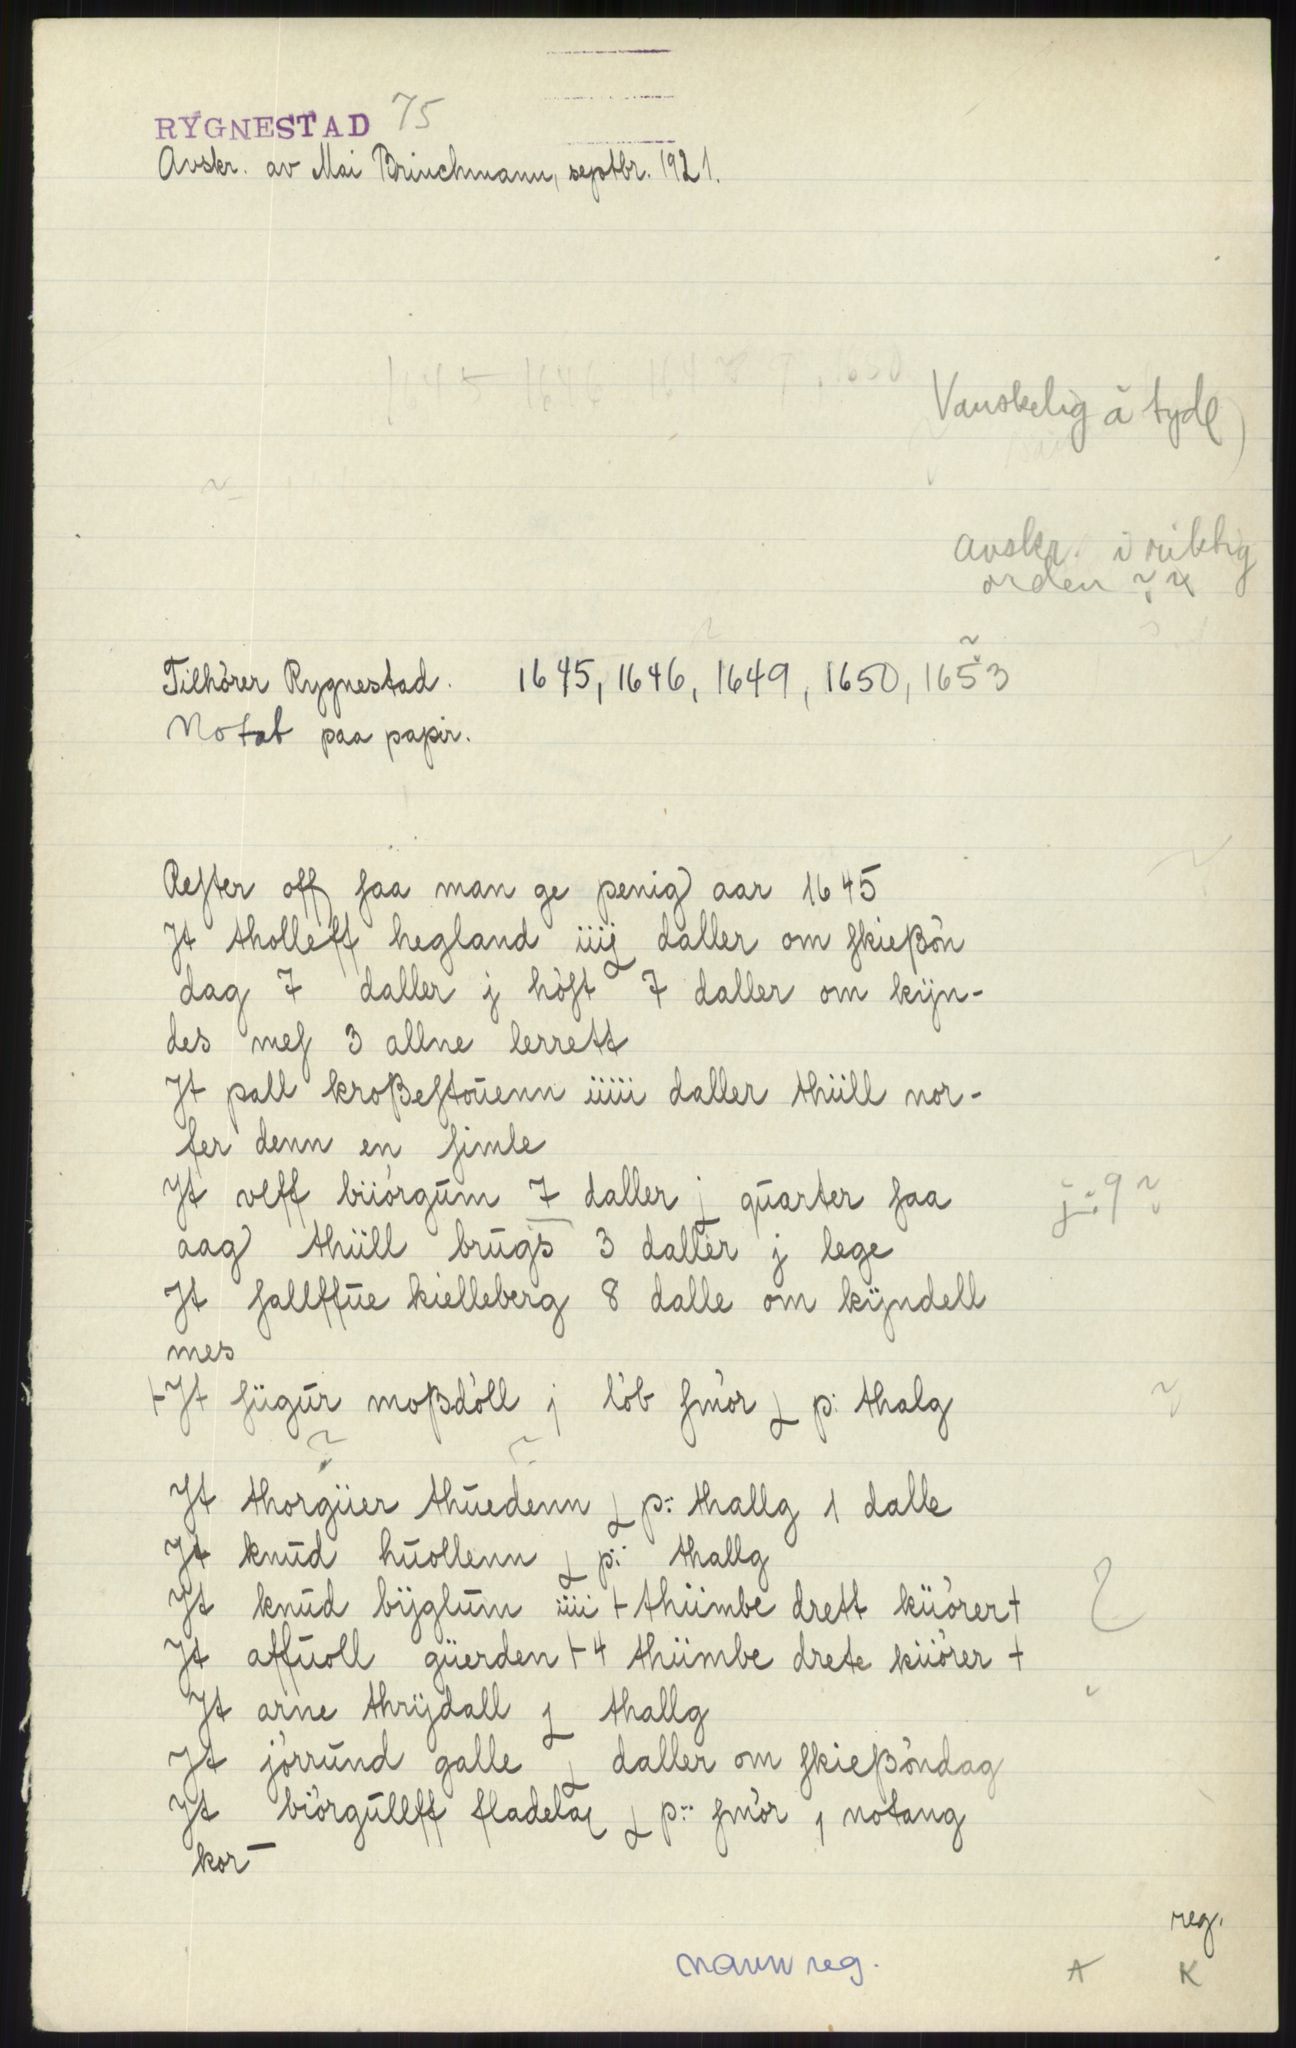 RYGNESTAD 75
Avskr. av Mai Brinchmann, septbr. 1921.
Vanskelig å tyde
avskr. i riktig
orden ??
Tilhörer Rygnestad. 1645, 1646, 1649, 1650, 1653
Notat paa papir.
Rester off faa man ge penig aar 1645
Jt tholleff hegland iiij daller om skießön
dag 7 daller j höst 7 daller om kÿn-
des mes 3 allne lerrett
Jt pall kroßestouenn iiiii daller thüll nor-
fer denn en simle
Jt veff biiörgum 7 daller j quarter faa
aag thüll brugs 3 daller j lege
Jt sallffue kielleberg 8 dalle om kÿndell
mes
+ Jt sügur moßdöll j löb smör j p: thalg
Jt thorgüer thuedenn j p: thallg 1 dalle
Jt knud huollenn j p: thallg
Jt knud bÿglum iiii + thümbe drett küörer +
Jt affuoll güerden + 4 thümbe drete küörer +
Jt arne thrÿdall j thallg
Jt jörrund galle j daller om skießöndag
Jt biörgullff fladelae j p: smör j notang
kor-
reg.
navn reg.
A K